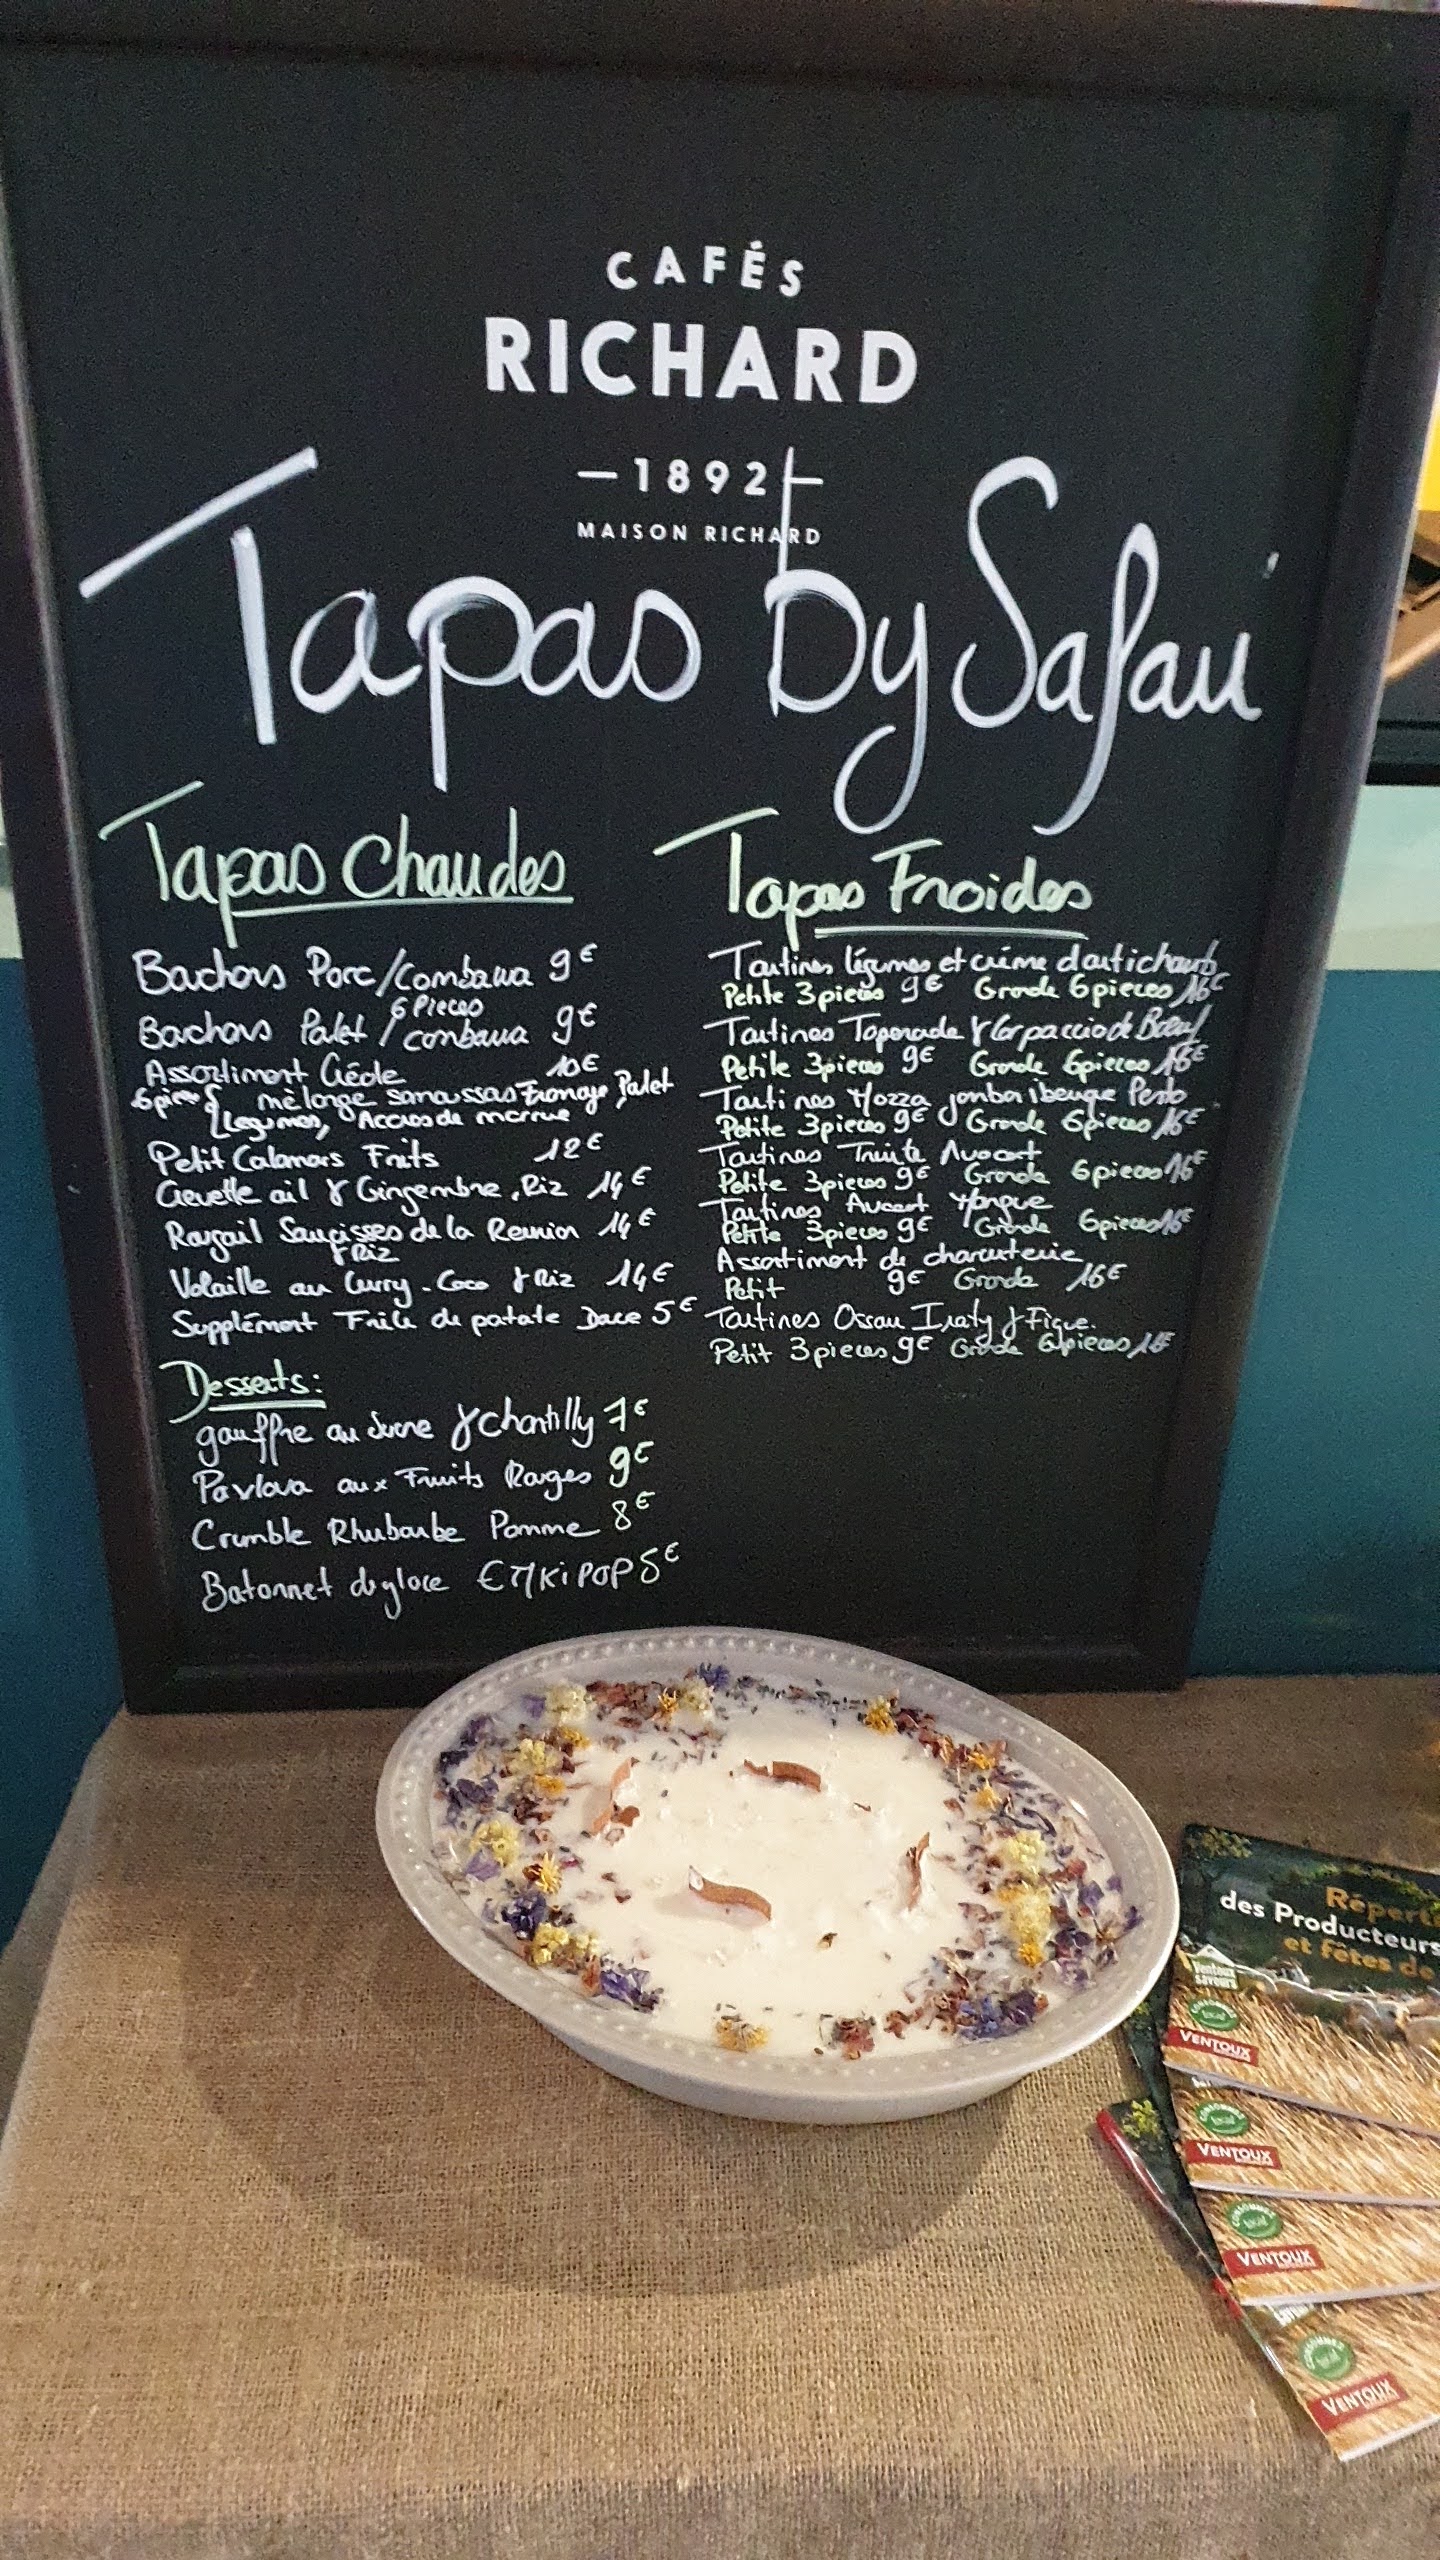 CAFÉS
RICHARD
1892
MAISON RICHARD
Tapas by Safari
Tapas Chaudes
Bachons Porc/Combawa 9€
6 Pieces
Bachons Palet / combawa 9€
Assortiment Créole 10€
6pieces mélange samossas Fromage, Palet
Légumes, Accras de morrue
Petit Calamars Frits 12€
Crevette ail & Gingembre, Riz 14€
Rougail Saucisses de la Reunion 14€
& Riz
Volaille au Curry-Coco & Riz 14€
Supplément Frite de patate Douce 5€
Desserts:
gauffre au Sucre & Chantilly 7€
Pavlova aux Fruits Rouges 9€
Crumble Rhubarbe Pomme 8€
Batonnet de glace 5€
Tapas Froides
Tartines légumes et crème d'artichauts
Petite 3pieces 9€ Grande 6pieces 16€
Tartines Taponade & Carpaccio de Bœuf
Petite 3pieces 9€ Grande 6pieces 16€
Tartines Mozza jambon Pesto
Petite 3pieces 9€ Grande 6pieces 16€
Tartines Truite Avocat
Petite 3pieces 9€ Grande 6pieces 16€
Tartines Avocat Mangue
Petite 3pieces 9€ Grande 6pieces 16€
Assortiment de charcuterie
Petit 9€ Grande 16€
Tartines Ossau Iraty & Figue.
Petit 3pieces 9€ Grande 6pieces
des Producteurs
et fêtes de
Ventoux
saveurs
CONSOMMEZ
local
VENTOUX
CONSOMMEZ
local
VENTOUX
CONSOMMEZ
local
VENTOUX
CONSOMMEZ
local
VENTOUX